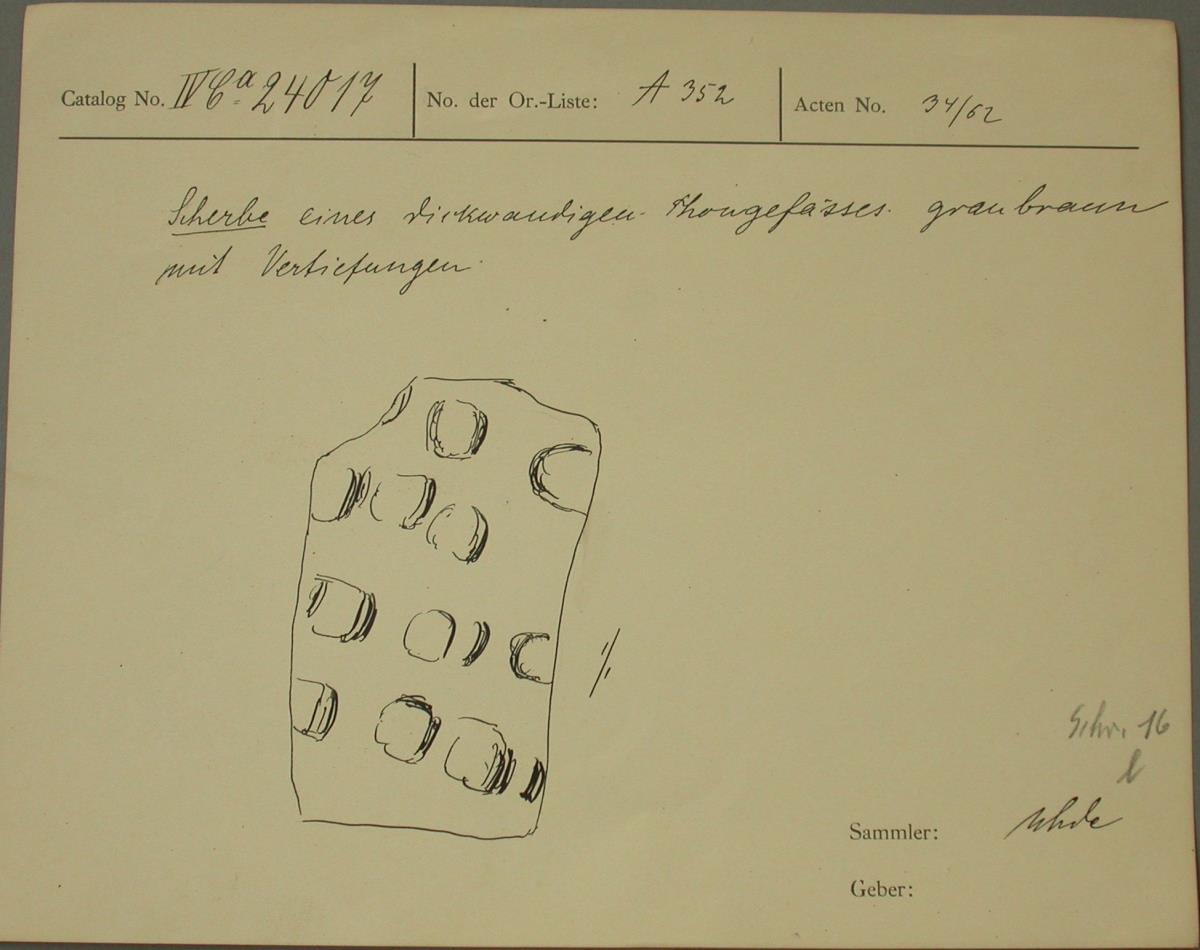 Catalog No. IV Ca 24017 No. der Or.-Liste: A 352 Acten No. 34/62
Scherbe eines dickwandigen Thongefässes graubraun
mit Vertiefungen
1/1
Schr. 16
l
Sammler: Uhde
Geber: